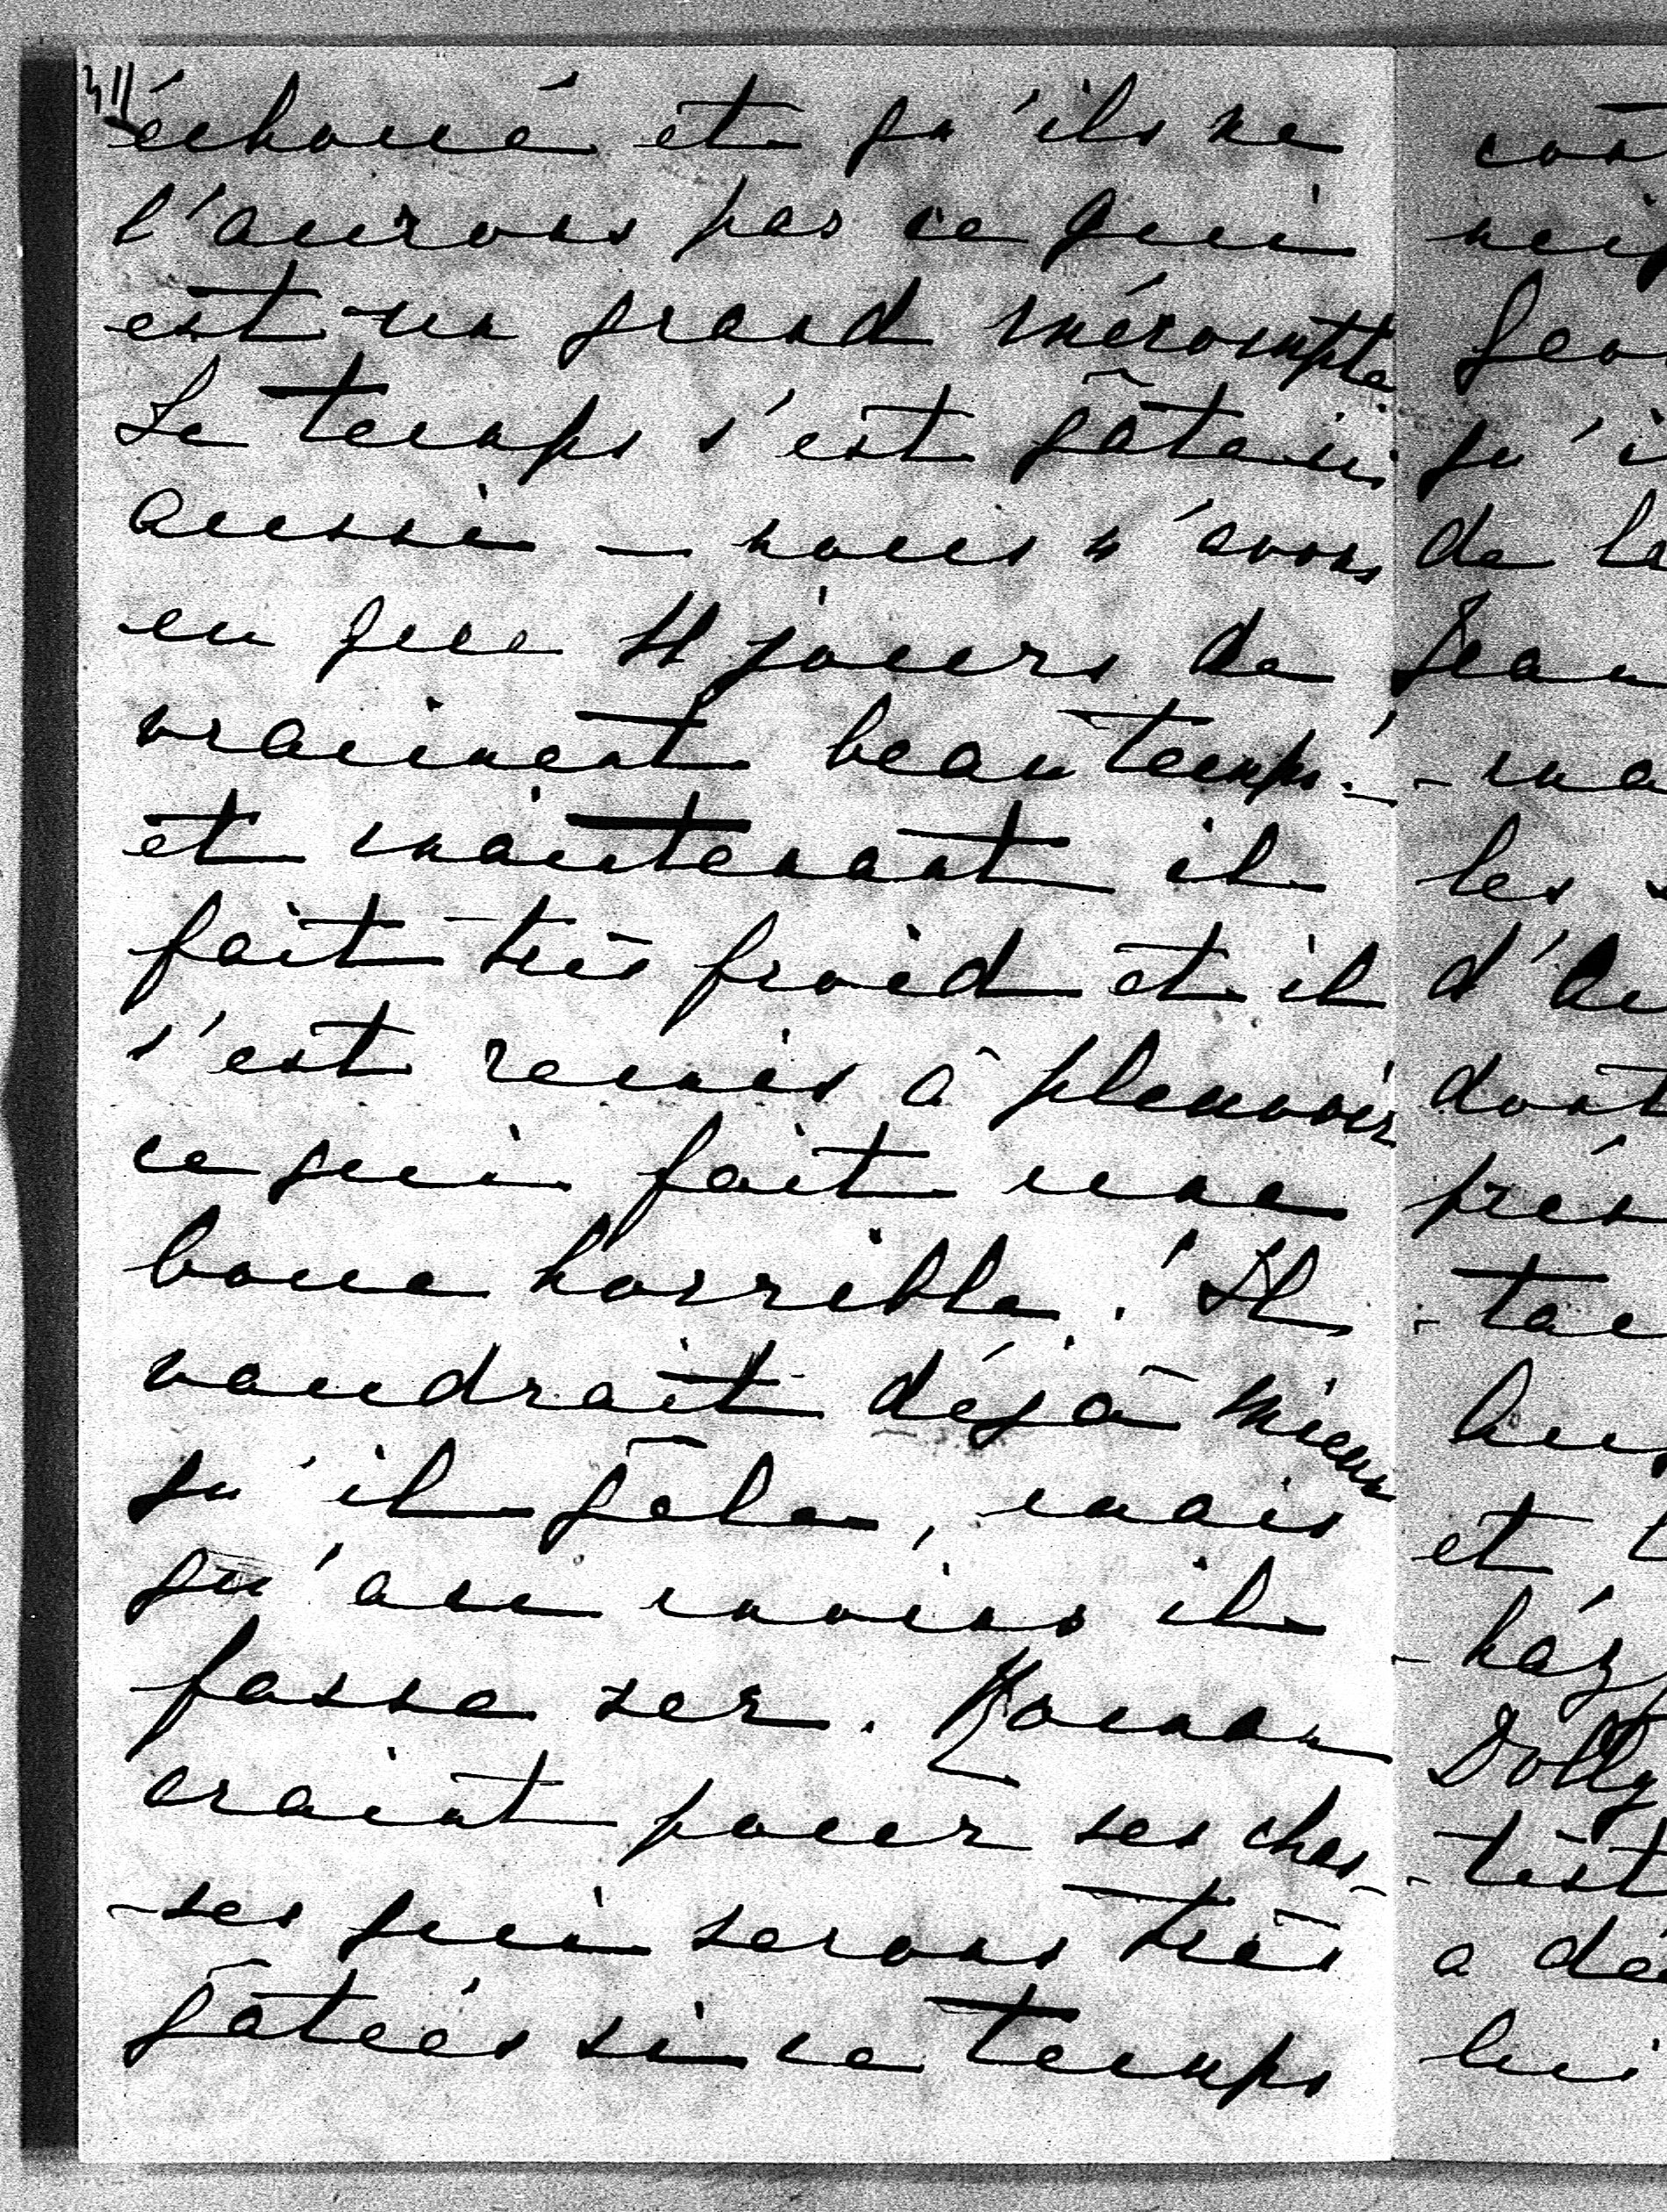 échoué et qu'ils ne
l'aurons pas ce qui
est un grand mécompte
Le temps s'est gâté ici
aussi — nous n'avons
eu que 4 jours de
vraiment beau temps!
et maintenant il
fait très froid et il
s'est remis à pleuvoir
ce qui fait une
boue horrible! Il
vaudrait déjà mieux
qu'il gèle, mais
qu'au moins il
fasse sec.
craint pour ses cho-
-ses qui serons très
gâtées si ce temps
qu'i
de la
les
d'
dont
et
Dolly
a dé